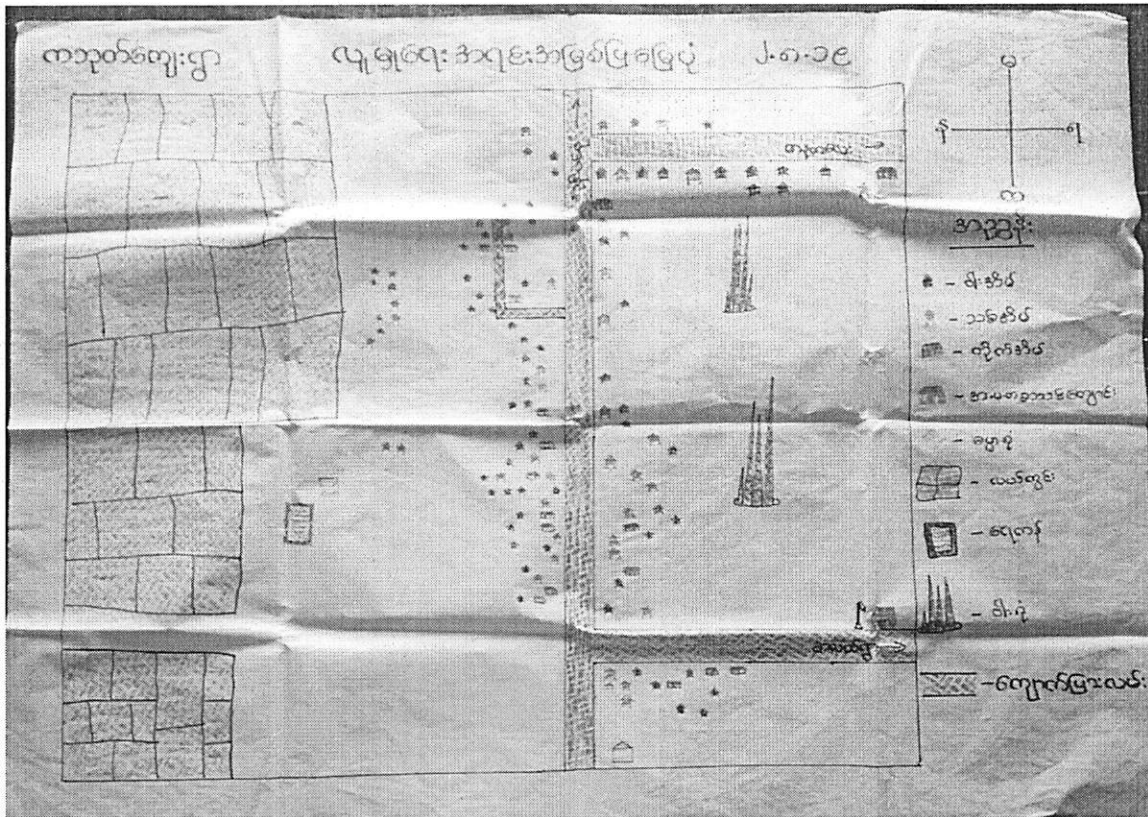 ကဘုတ်ကျေးရွာ လူမှုရေး အရင်းအမြစ်ပြမြေပုံ ၂.၈.၁၉
မ
န ရ
က
အညွှန်း
- ဝါးအိမ်
- သစ်အိမ်
- တိုက်အိမ်
- အ.မ.က စာသင်ကျောင်း
- ဓမ္မာရုံ
- လယ်ကွင်း
- ရေကန်
- ဝါးရုံ
- ကျောက်ပြားလမ်း